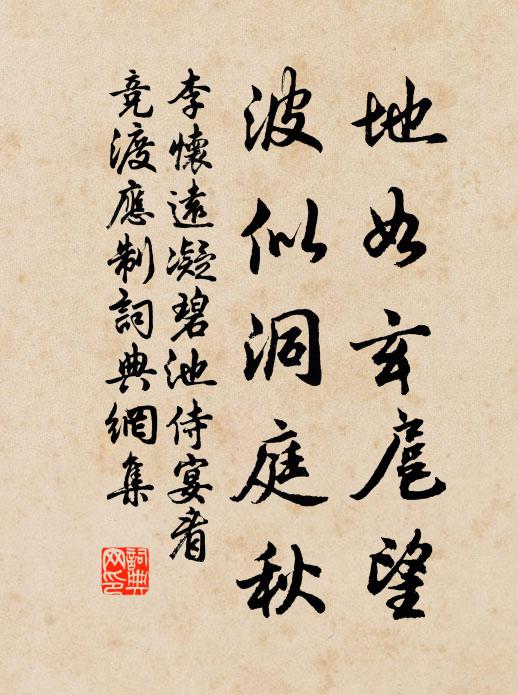 地如玄扈望
波似洞庭秋
李懷遠凝碧池侍宴看
竞渡應制詞典網集
詞典网印